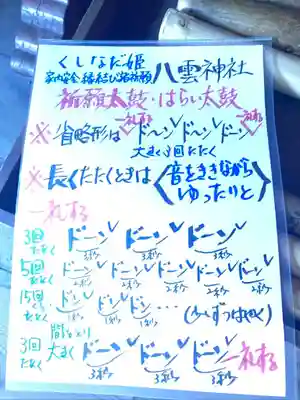 くしなだ姫
家内安全・縁結び・諸祈願 八雲神社
祈願太鼓・はらい太鼓
※省略形は 一礼する ドーンドーンドーン 一礼する
大きく3回たたく
※長くたたくときは 音をききながらゆったりと
一礼する
3回たたく ドーン 3秒 ドーン 3秒 ドーン 3秒
5回たたく ドーン 2秒 ドーン 2秒 ドーン 2秒 ドーン 2秒 ドーン 2秒
15回たたく ドン 1秒 ドン 1秒 ドン 1秒 … (少しずつはやく)
間をとり
3回たたく 大きく ドーン 3秒 ドーン 3秒 ドーン 3秒 一礼する